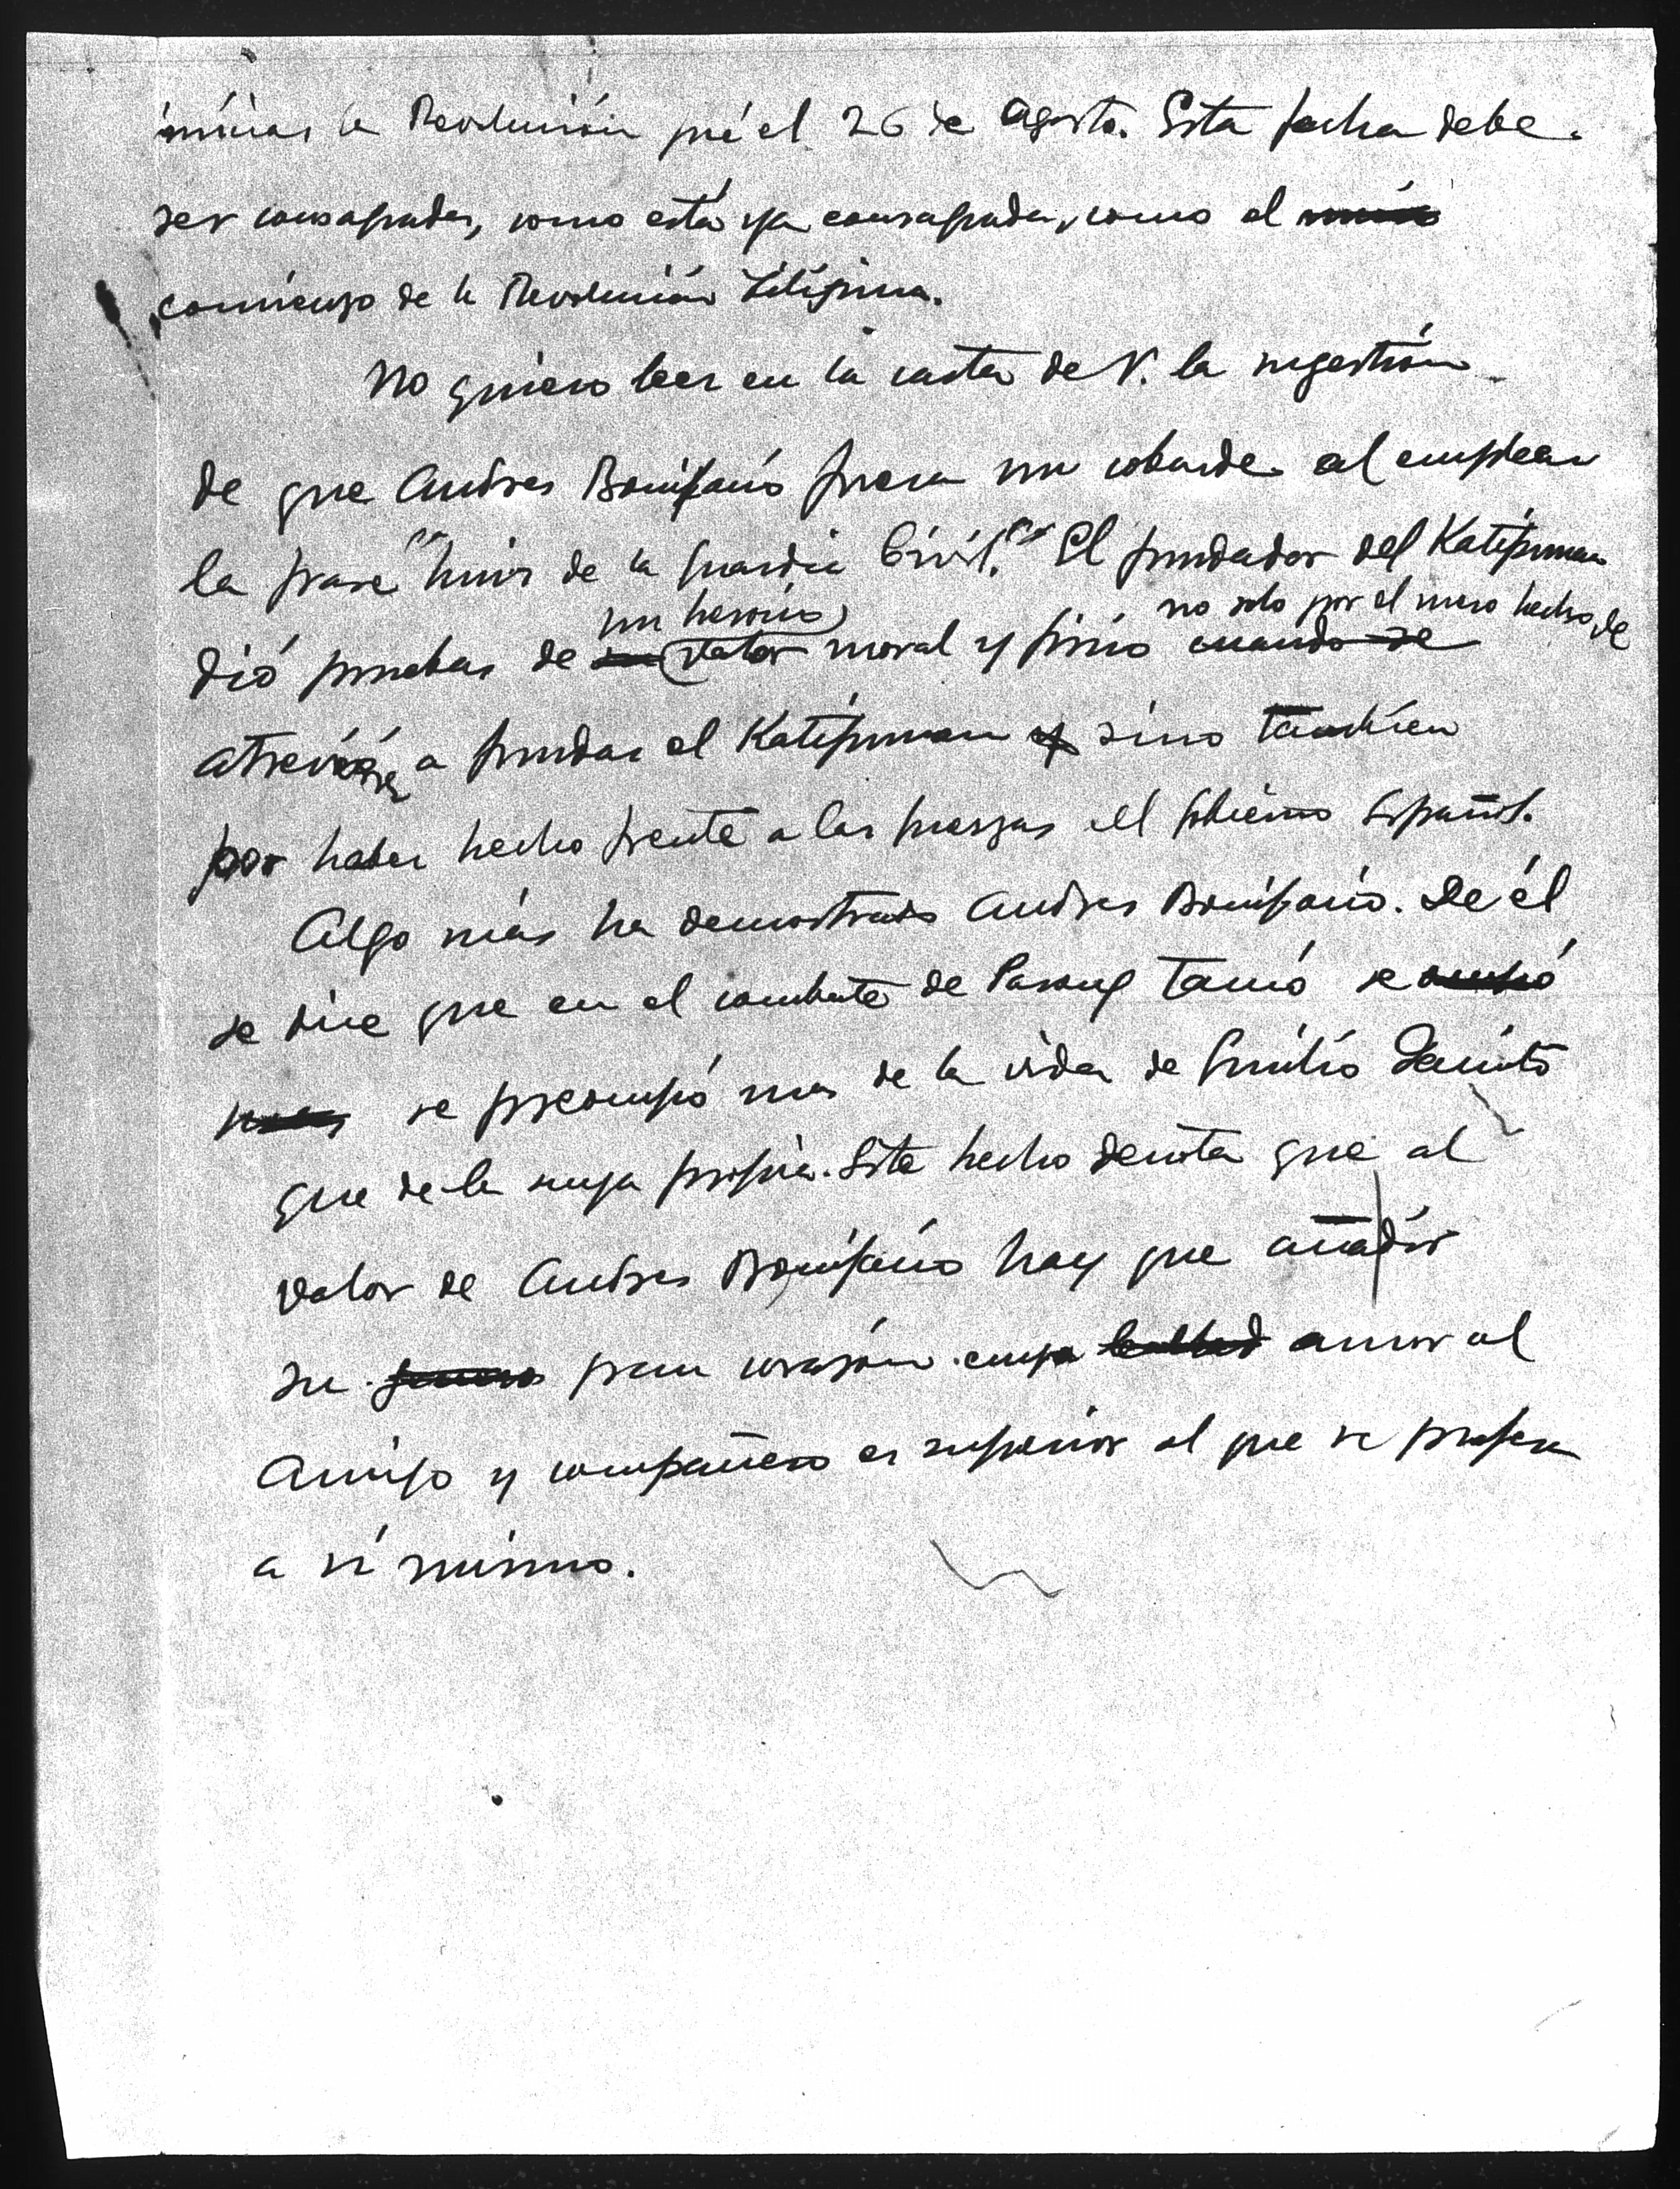 iniciar la Revolución fué el 26 de Agosto. Esta fecha debe
ser consagrada, como está ya consagrada, como el inicio
comienzo de la Revolución Filipina.
No quiero leer en la carta de V. la sugestión
de que Andres Bonifacio fuera un cobarde al emplear
la frase "huir de la Guardia Civil." El fundador del Katipunan
un heroico no solo por el mero hecho de
dió pruebas de su valor moral y físico cuando se
atreverse a fundar el Katipunan y sino también
por haber hecho frente a las fuerzas del Gobierno Español.
Algo más ha demostrado Andres Bonifacio. De él
se dice que en el combate de Pasong Tamó se ocupó
mas se preocupó mas de la vida de Emilio Jacinto
que de la suya propia. Este hecho denota que al
valor de Andres Bonifacio hay que añadir
su gran corazón cuya lealtad amor al
Amigo y compañero es superior al que se profesa
a sí mismo.